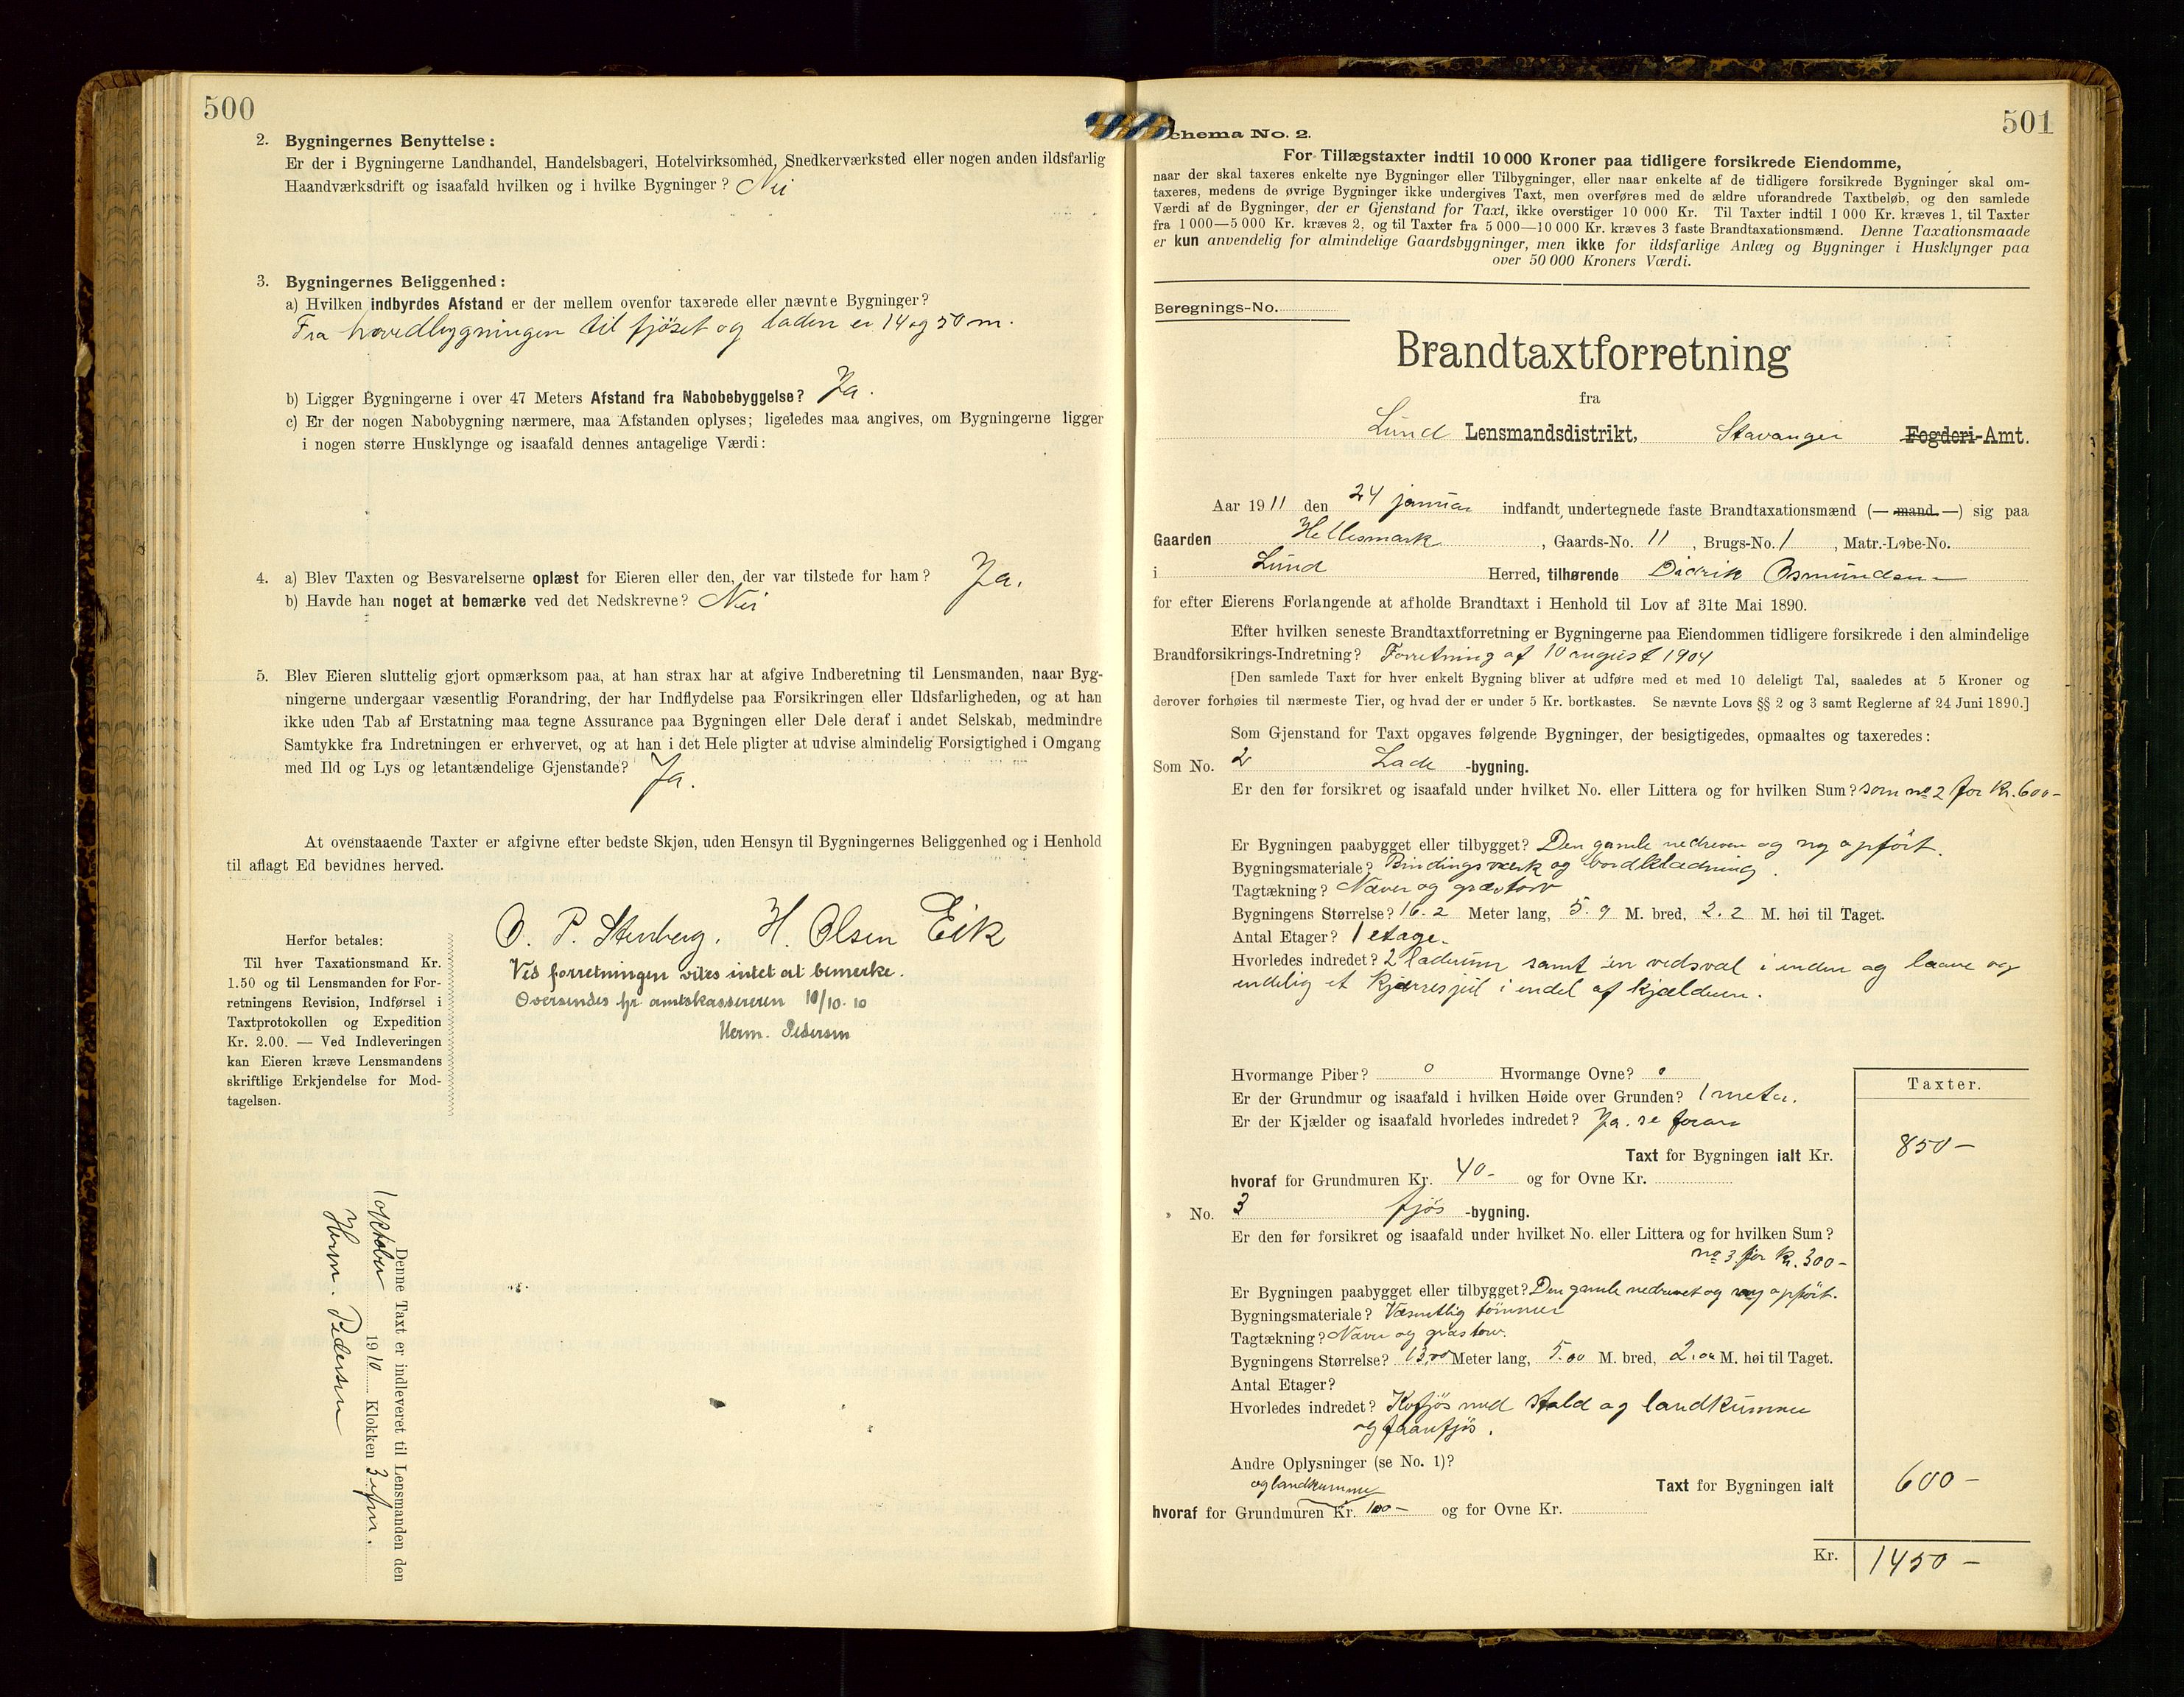 500
2. Bygningernes Benyttelse:
Er der i Bygningerne Landhandel, Handelsbageri, Hotelvirksomhed, Snedkerværksted eller nogen anden ildsfarlig
Haandværksdrift og isaafald hvilken og i hvilke Bygninger? Nei
3. Bygningernes Beliggenhed:
a) Hvilken indbyrdes Afstand er der mellem ovenfor taxerede eller nævnte Bygninger?
Fra hovedbygningen til fjöset og laden er 14 og 50 m.
b) Ligger Bygningerne i over 47 Meters Afstand fra Nabobebyggelse? Ja.
c) Er der nogen Nabobygning nærmere, maa Afstanden oplyses; ligeledes maa angives, om Bygningerne ligger
i nogen større Husklynge og isaafald dennes antagelige Værdi:
4. a) Blev Taxten og Besvarelserne oplæst for Eieren eller den, der var tilstede for ham? Ja.
b) Havde han noget at bemærke ved det Nedskrevne? Nei
5. Blev Eieren sluttelig gjort opmærksom paa, at han strax har at afgive Indberetning til Lensmanden, naar Byg-
ningerne undergaar væsentlig Forandring, der har Indflydelse paa Forsikringen eller Ildsfarligheden, og at han
ikke uden Tab af Erstatning maa tegne Assurance paa Bygningen eller Dele deraf i andet Selskab, medmindre
Samtykke fra Indretningen er erhvervet, og at han i det Hele pligter at udvise almindelig Forsigtighed i Omgang
med Ild og Lys og letantændelige Gjenstande? Ja.
At ovenstaaende Taxter er afgivne efter bedste Skjøn, uden Hensyn til Bygningernes Beliggenhed og i Henhold
til aflagt Ed bevidnes herved.
O. P. Stenberg. H. Olsen Eik
Ved forretningen vites intet at bemerke.
Oversendes hr amtskassereren 10/10. 10
Herm. Pedersen
Herfor betales:
Til hver Taxationsmand Kr.
1.50 og til Lensmanden for For-
retningens Revision, Indførsel i
Taxtprotokollen og Expedition
Kr. 2.00. — Ved Indleveringen
kan Eieren kræve Lensmandens
skriftlige Erkjendelse for Mod-
tagelsen.
Denne Taxt er indleveret til Lensmanden den
1 oktober 1910 Klokken 3 efm.
Herm. Pedersen
501
chema No. 2.
For Tillægstaxter indtil 10 000 Kroner paa tidligere forsikrede Eiendomme,
naar der skal taxeres enkelte nye Bygninger eller Tilbygninger, eller naar enkelte af de tidligere forsikrede Bygninger skal om-
taxeres, medens de øvrige Bygninger ikke undergives Taxt, men overføres med de ældre uforandrede Taxtbeløb, og den samlede
Værdi af de Bygninger, der er Gjenstand for Taxt, ikke overstiger 10 000 Kr. Til Taxter indtil 1 000 Kr. kræves 1, til Taxter
fra 1 000—5 000 Kr. kræves 2, og til Taxter fra 5 000—10 000 Kr. kræves 3 faste Brandtaxationsmænd. Denne Taxationsmaade
er kun anvendelig for almindelige Gaardsbygninger, men ikke for ildsfarlige Anlæg og Bygninger i Husklynger paa
over 50 000 Kroners Værdi.
Beregnings-No.
Brandtaxtforretning
fra
Lund Lensmandsdistrikt, Stavanger Fogderi-Amt.
Aar 1911 den 24 januar indfandt undertegnede faste Brandtaxationsmænd (— mand. —) sig paa
Gaarden Hellesmark, Gaards-No. 11, Brugs-No. 1, Matr.-Løbe-No.
i Lund Herred, tilhørende Didrik Osmundsen
for efter Eierens Forlangende at afholde Brandtaxt i Henhold til Lov af 31te Mai 1890.
Efter hvilken seneste Brandtaxtforretning er Bygningerne paa Eiendommen tidligere forsikrede i den almindelige
Brandforsikrings-Indretning? Forretning af 10 august 1904
[Den samlede Taxt for hver enkelt Bygning bliver at udføre med et med 10 deleligt Tal, saaledes at 5 Kroner og
derover forhøies til nærmeste Tier, og hvad der er under 5 Kr. bortkastes. Se nævnte Lovs §§ 2 og 3 samt Reglerne af 24 Juni 1890.]
Som Gjenstand for Taxt opgaves følgende Bygninger, der besigtigedes, opmaaltes og taxeredes:
Som No. 2 Lade -bygning.
Er den før forsikret og isaafald under hvilket No. eller Littera og for hvilken Sum? som no 2 for Kr. 600-
Er Bygningen paabygget eller tilbygget? Den gamle nedreven og ny opfört.
Bygningsmateriale? Bindingsværk og bordklædning.
Tagtækning? Næver og græstorv
Bygningens Størrelse? 16.2 Meter lang, 5.9 M. bred, 2.2 M. høi til Taget.
Antal Etager? 1 etage.
Hvorledes indredet? 2 laderum samt en vedsval i enden og laave og
endelig et Kjærresjul i endel af kjælderen.
Hvormange Piber? 0 Hvormange Ovne? 0
Er der Grundmur og isaafald i hvilken Høide over Grunden? 1 meter.
Er der Kjælder og isaafald hvorledes indredet? Ja. se foran
Taxter.
Taxt for Bygningen ialt Kr. 850-
hvoraf for Grundmuren Kr. 40- og for Ovne Kr.
No. 3 fjös -bygning.
Er den før forsikret og isaafald under hvilket No. eller Littera og for hvilken Sum?
no 3 for Kr. 300-
Er Bygningen paabygget eller tilbygget? Den gamle nedrevet og ny opfört.
Bygningsmateriale? Væsentlig tömmer
Tagtækning? Næver og græstorv.
Bygningens Størrelse? 13,00 Meter lang, 5.00 M. bred, 2.00 M. høi til Taget.
Antal Etager?
Hvorledes indredet? Kofjös med stald og landkummer
og faarefjös.
Andre Oplysninger (se No. 1)?
og landkumme
Taxt for Bygningen ialt 600-
hvoraf for Grundmuren Kr. 100- og for Ovne Kr.
Kr. 1450-